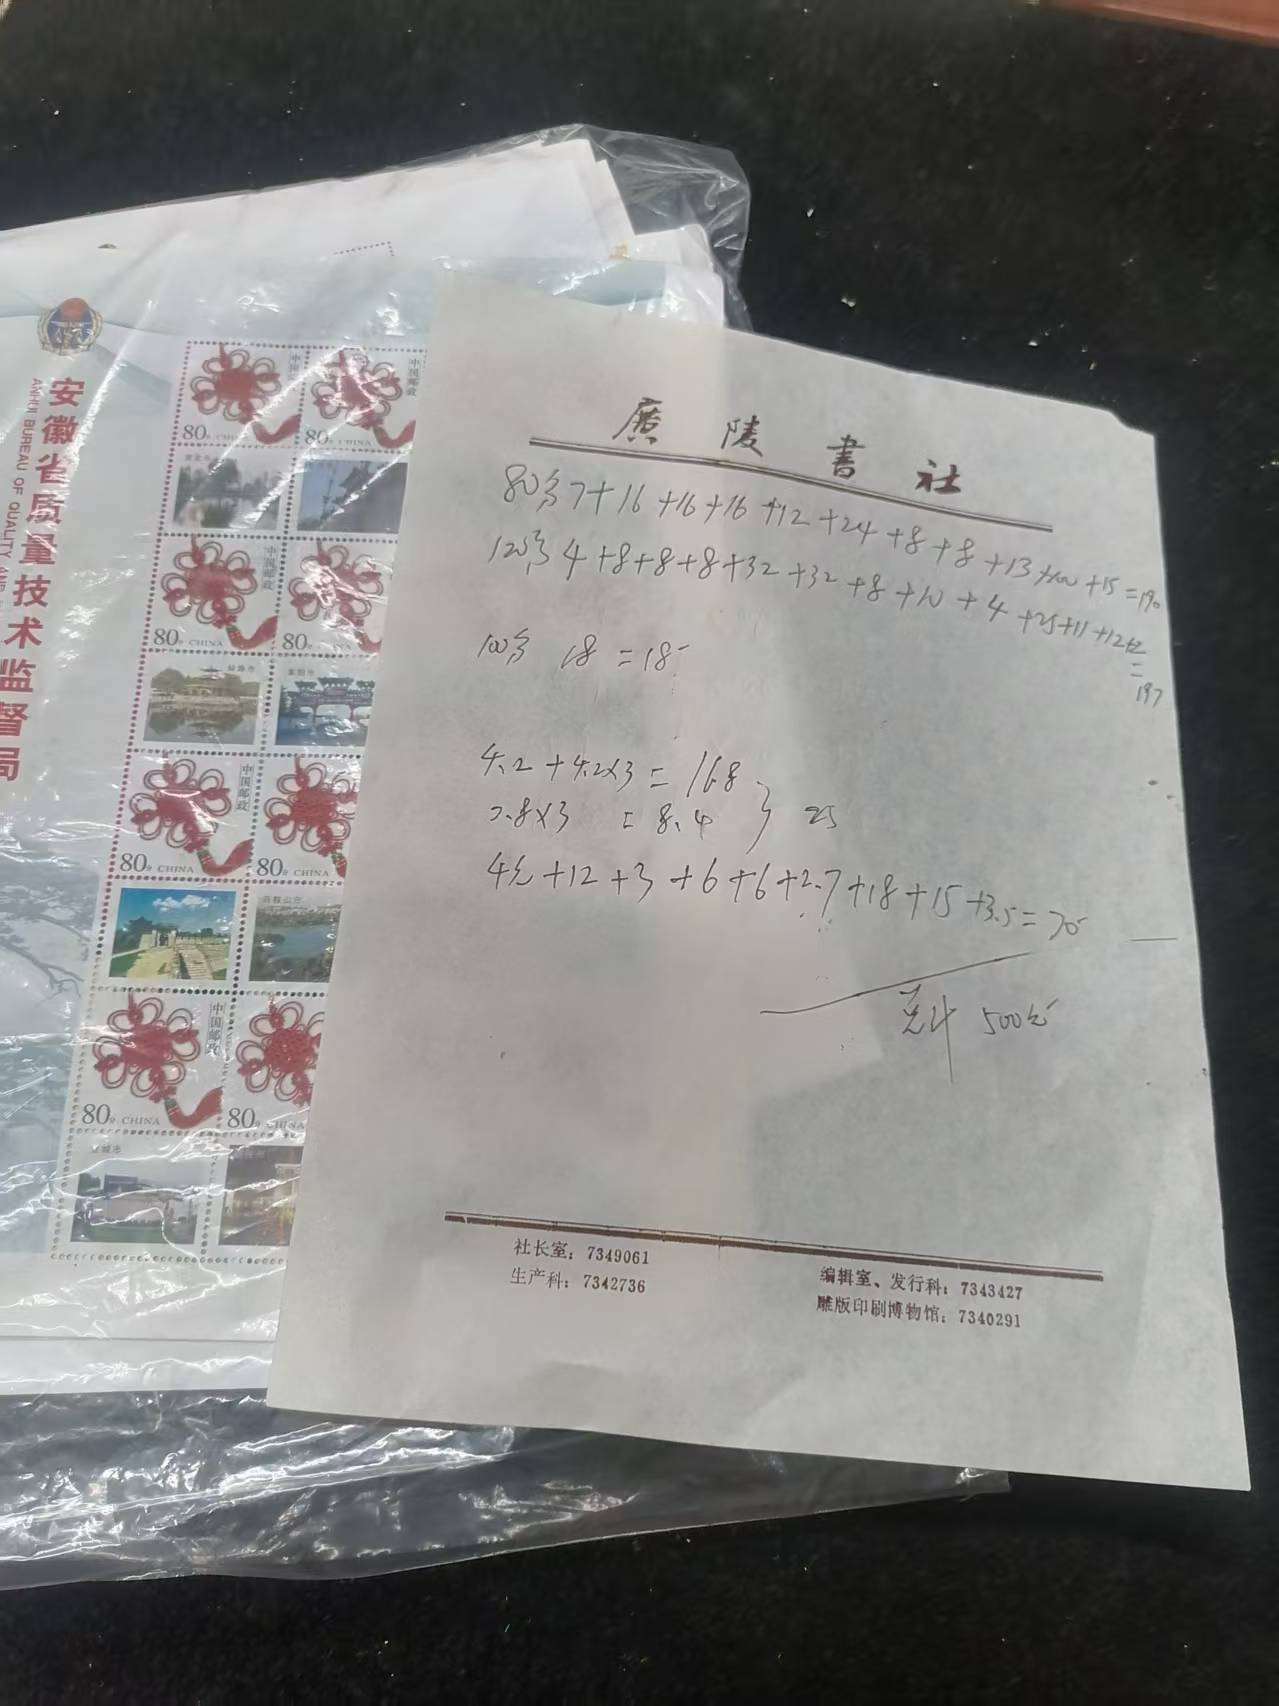 安徽省质量技术监督局
ANHUI BUREAU OF QUALITY AND
中国邮政
80分 CHINA
80分 CHINA
中国邮政
80分 CHINA
80分 CHINA
蚌埠市
阜阳市
中国邮政
80分 CHINA
80分 CHINA
马鞍山市
中国邮政
80分 CHINA
80分 CHINA
宣城市
廣陵書社
80分 7+16+16+16+12+24+8+8+13+100+15=190
120分 4+8+8+8+32+32+8+10+4+25+11+12元
=
197
100分 18=18
4.2+4.2×3=16.8
2.8×3=8.4 } 25
4元+12+3+6+6+2.7+18+15+3.5=70
总计 500元
社长室：7349061
生产科：7342736
编辑室、发行科：7343427
雕版印刷博物馆：7340291